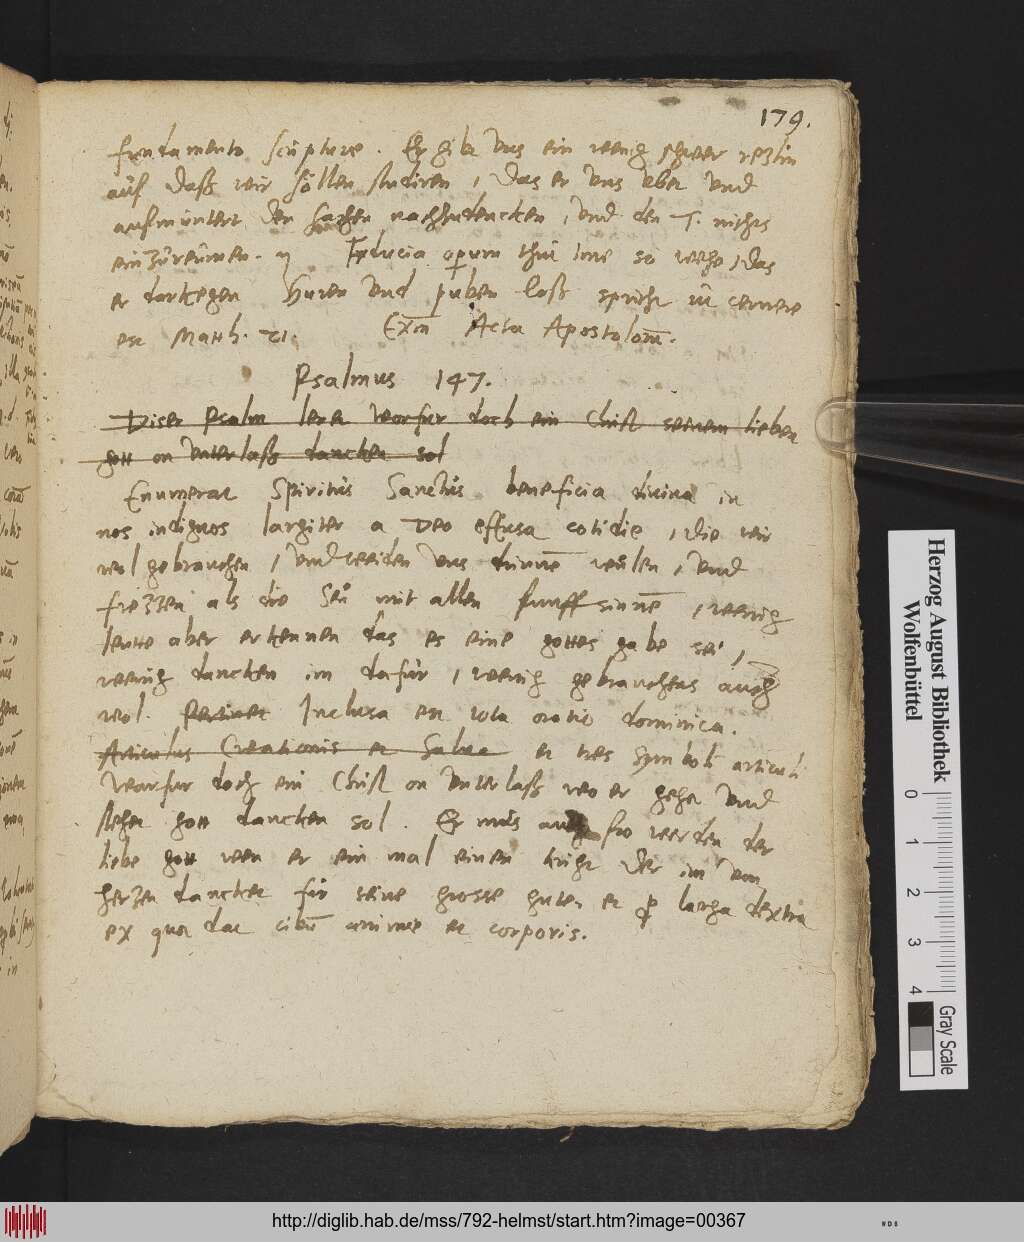 179.
fundamento scripture. Er gibt uns ein wenig schwer
auf daß wir sollen studiren, das er uns ubet und
aufmuntert den sachen nachzudencken, und den T. nichts
einzureumen. Fiducia operum thut ime so wehe, das
er dartkegen huren und puben laßt spricht
est Matth. 21. Acta Apostolorum.
Psalmus 147.
Diser Psalm leret worfur doch ein Christ seinem lieben
gott on unterlaß dancken sol
Enumerat Spiritus Sanctus beneficia divina in
nos indignos largiter a Deo effusa cotidie, die wir
wol gebrauchen, und weiden uns drinnē weulen, und
frezzen als die Seu mit allen funff sinnē, wenig
leutte aber erkennen das es eine gottes gabe sei,
wenig dancken im dafur, wenig gebrauchens auch
wol. Pertinet Inclusa est tota oratio dominica.
Articulus Creationis et Salve et tres Symboli articuli
Worfur doch ein Christ on unterlaß wo er gehet und
stehet gott dancken sol. Er mus auch fro werden der
liebe gott wen er ein mal einen kriget der im von
herzen dancket fur seine grosse guter et p larga dextra
ex qua dat cibū anime et corporis.
Herzog August Bibliothek
Wolfenbüttel
0 1 2 3 4
Gray Scale
http://diglib.hab.de/mss/792-helmst/start.htm?image=00367